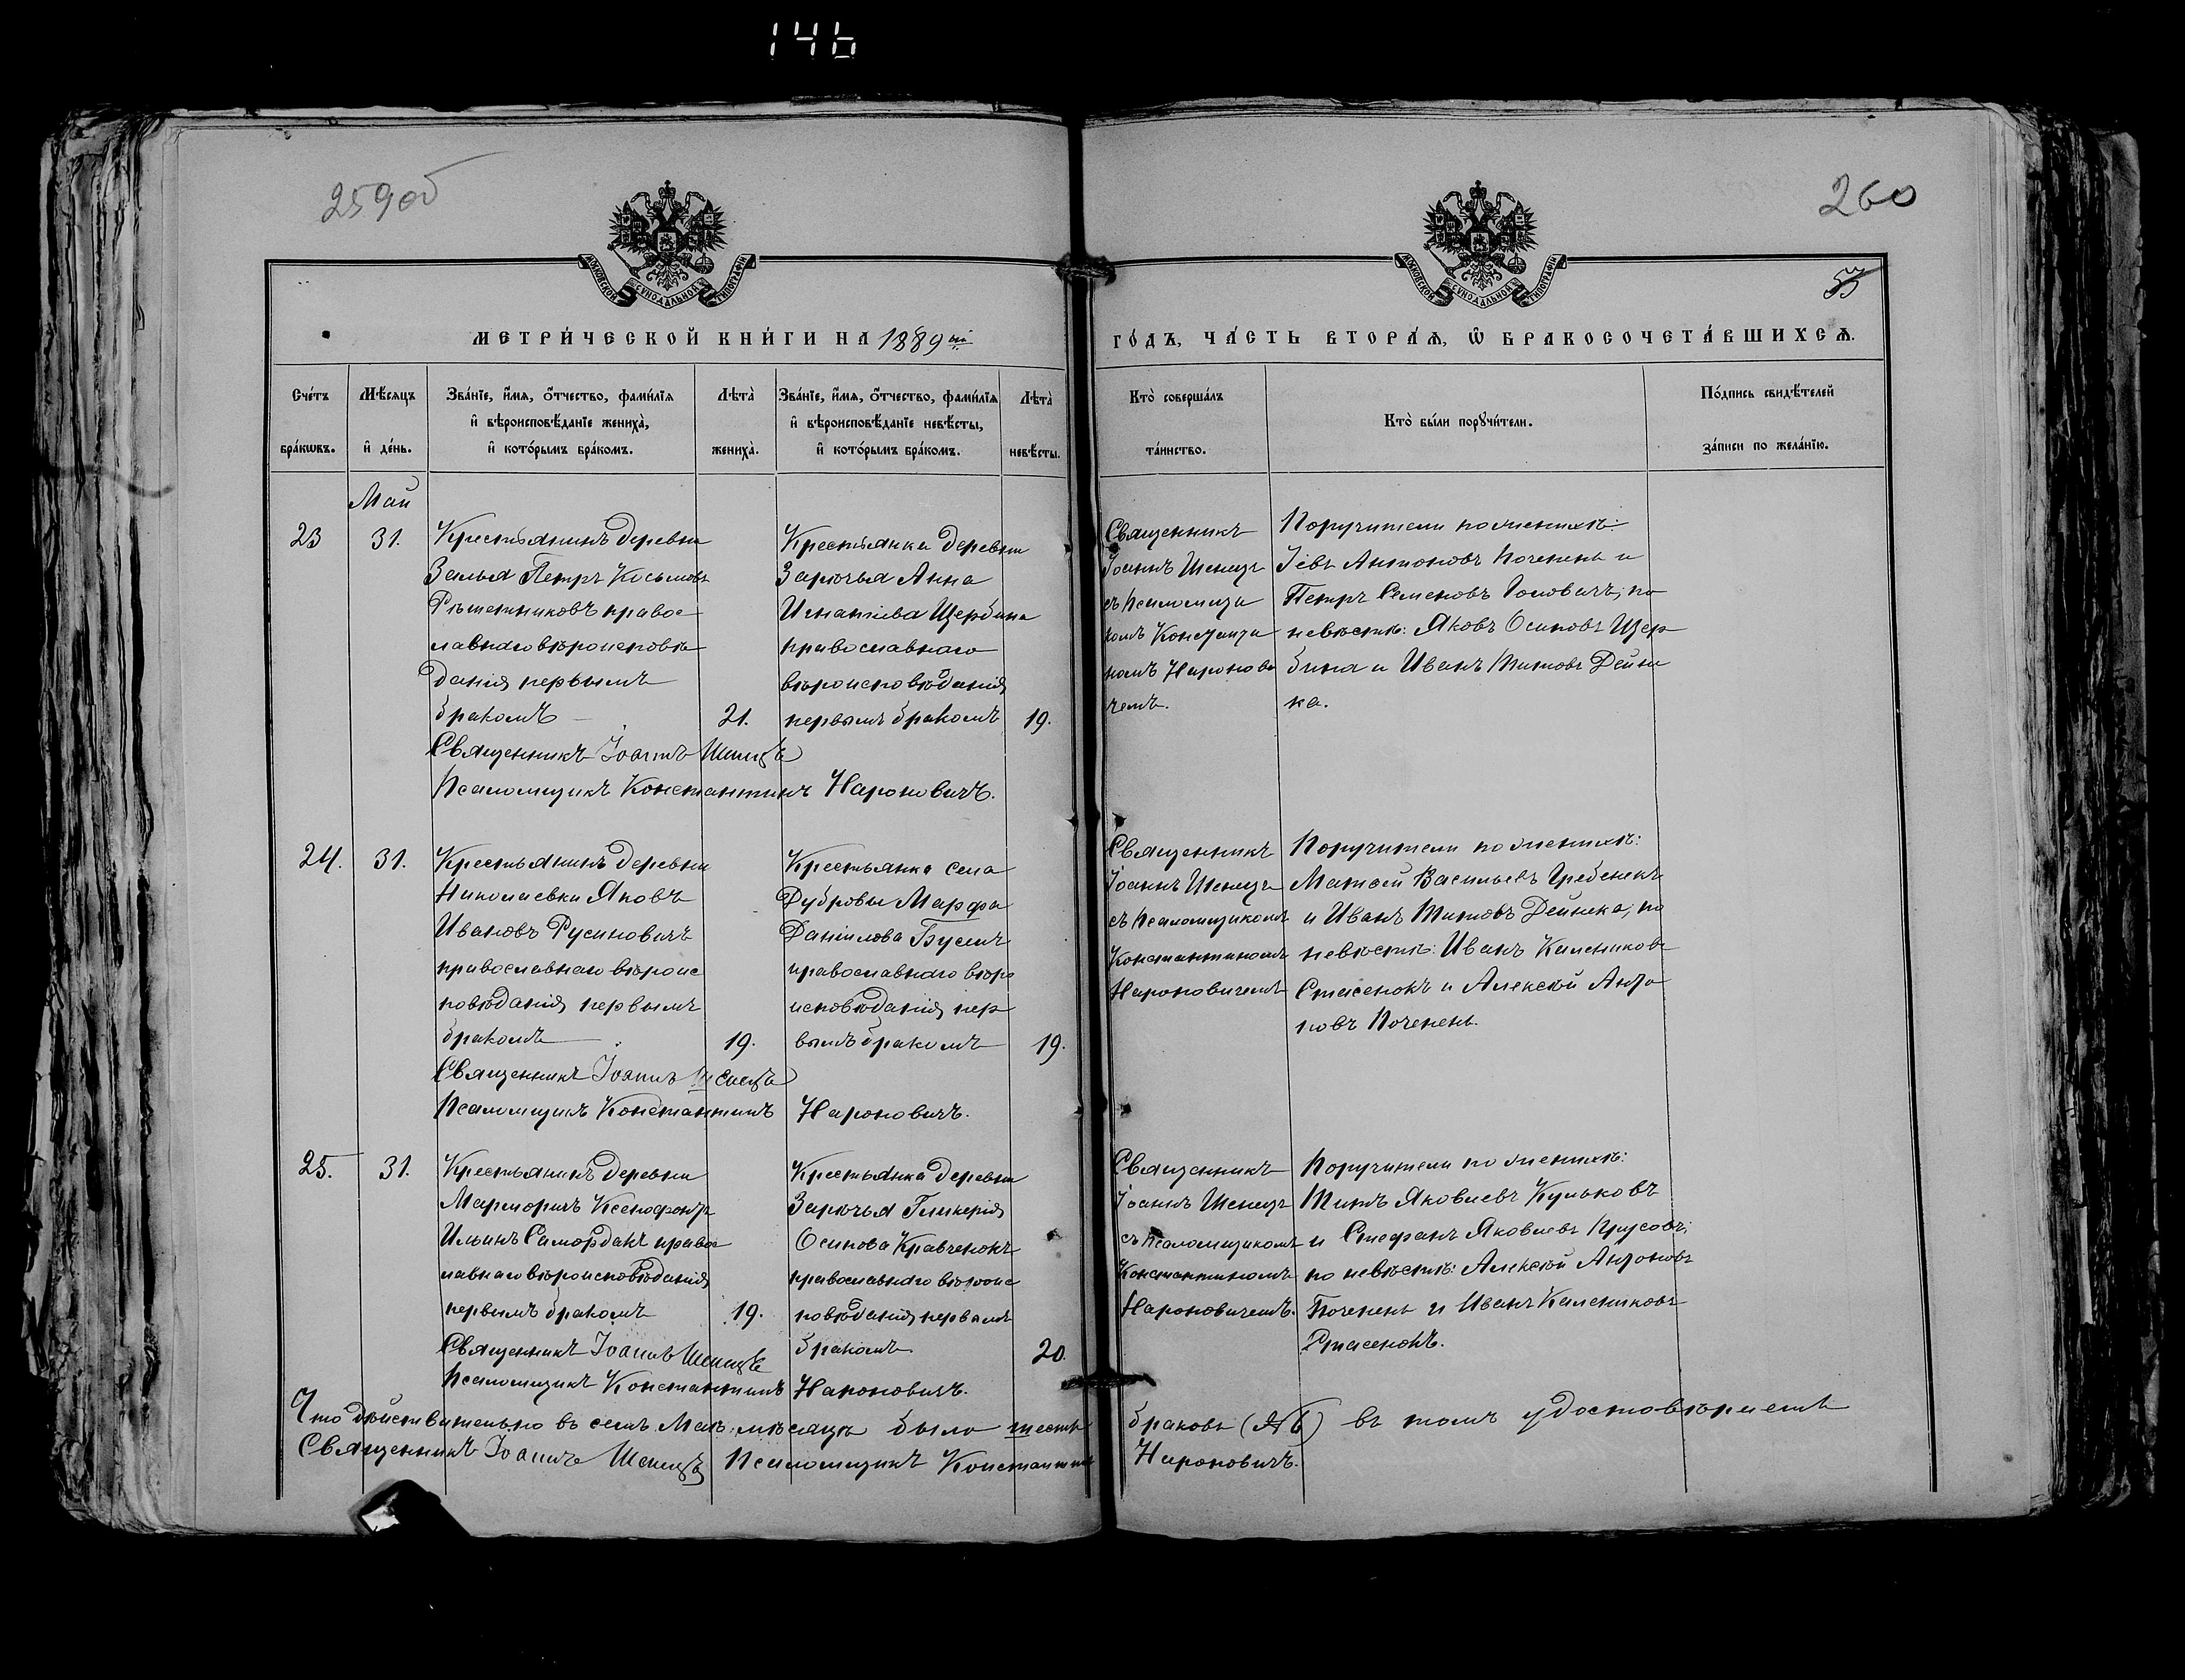 146
259об
260
53
МОСКОВСКОЙ СѴНОДАЛЬНОЙ ТИПОГРАФІИ
МОСКОВСКОЙ СѴНОДАЛЬНОЙ ТИПОГРАФІИ
МЕТРИ́ЧЕСКОЙ КНИ́ГИ НА 1889 ый
ГО́ДЪ, ЧА́СТЬ ВТОРА́Ѧ, Ѡ҆ БРАКОСОЧЕТА́ВШИХСѦ.
Сче́тъ
бра́кѡвъ.
Мѣ́сяцъ
и҆ де́нь.
Зва́нїе, и҆́мя, ѻ҆́тчество, фами́лїя
и҆ вѣроисповѣ́данїе жениха̀,
и҆ кото́рымъ бра́комъ.
Лѣта̀
жениха̀.
Зва́нїе, и҆́мя, ѻ҆́тчество, фами́лїя
и҆ вѣроисповѣ́данїе невѣ́сты,
и҆ кото́рымъ бра́комъ.
Лѣта̀
невѣ́сты.
Кто̀ соверша́лъ
та́инство.
Кто̀ бы́ли порꙋчи́тели.
По́дпись свидѣ́телей
за́писи по жела́нїю.
Май
23
31.
Крестьянинъ деревни
Петръ Косьмовъ
Рѣшетниковъ правос
лавнаго вѣроисповѣ
данія первымъ
бракомъ
21.
Крестьянка деревни
Зарѣчья Анна
Игнатіева Щербина
православнаго
вѣроисповѣданія
первымъ бракомъ
19.
Священникъ
Іоаннъ Шенецъ
съ Псаломщи
комъ Константи
номъ Наронови
чемъ.
Поручители по женихѣ:
Іевъ Антоновъ Почепень и
Петръ Семеновъ Головачъ; по
невѣстѣ: Яковъ Осиповъ Щер
бина и Иванъ Титовъ Дейне
ка.
Священникъ Іоаннъ Шенецъ
Псаломщикъ Константинъ Нароновичъ.
24.
31.
Крестьянинъ деревни
Николаевки Яковъ
Ивановъ Русиновичъ
православнаго вѣроис
повѣданія первымъ
бракомъ
19.
Крестьянка села
Дубровы Марфа
Даніилова Бусель
православнаго вѣро
исповѣданія пер
вымъ бракомъ
19.
Священникъ
Іоаннъ Шенецъ
съ Псаломщикомъ
Константиномъ
Нароновичемъ
Поручители по женихѣ:
Матѳей Васильевъ Гребенекъ
и Иванъ Титовъ Дейнека; по
невѣстѣ: Иванъ Калениковъ
Стасенокъ и Алексѣй Анто
новъ Почепень.
Священникъ Іоаннъ Шенецъ
Псаломщикъ Константинъ Нароновичъ.
25.
31.
Крестьянинъ деревни
Ксенофонтъ
Ильинъ Саморданъ правос
лавнаго вѣроисповѣданія
первымъ бракомъ
19.
Крестьянка деревни
Зарѣчья Гликерія
Осипова Кравченокъ
православнаго вѣроис
повѣданія первымъ
бракомъ
20.
Священникъ
Іоаннъ Шенецъ
съ Псаломщикомъ
Константиномъ
Нароновичемъ.
Поручители по женихѣ:
Титъ Яковлевъ Кульковъ
и Стефанъ Яковлевъ Прусовъ;
по невѣстѣ: Алексѣй Антоновъ
Почепень и Иванъ Калениковъ
Стасенокъ.
Священникъ Іоаннъ Шенецъ
Псаломщикъ Константинъ Нароновичъ.
Что дѣйствительно въ семъ Маѣ мѣсяцѣ было шесть браковъ (№6) въ томъ удостовѣряемъ
Священникъ Іоаннъ Шенецъ Псаломщикъ Константинъ Нароновичъ.